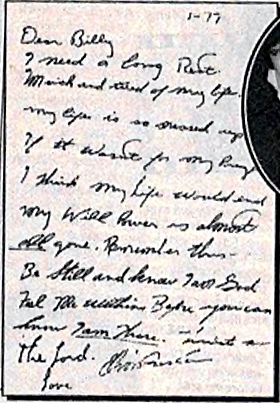 1-77
Dear Billy
I need a long Rest.
and tired of my life.
my life is so messed up
If it wasn't for my
I think my life would end
my Will Power is almost
all gone. Remember this-
Be Still and know I am God
Me within Before you can
know I am There.
the Lord.
Love